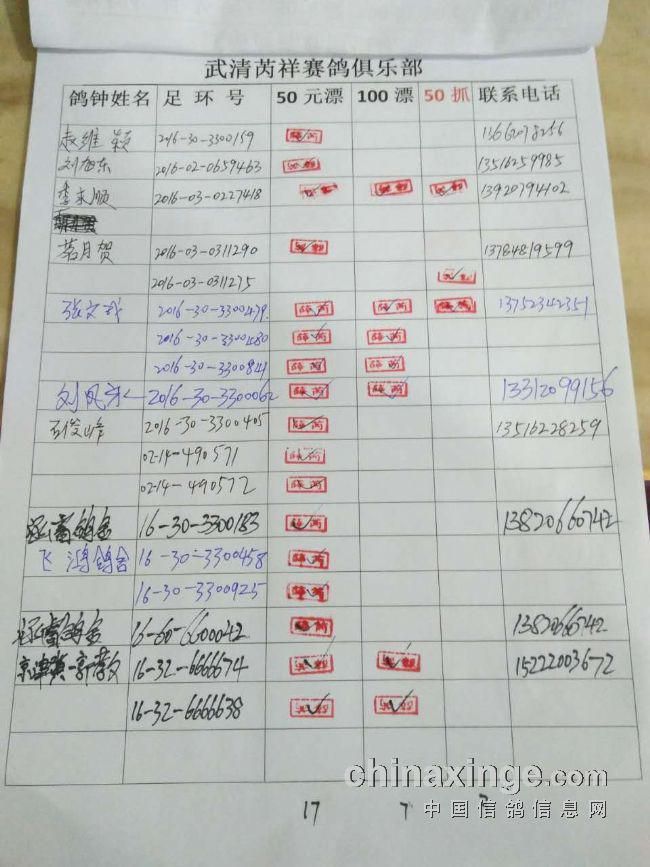 武清芮祥赛鸽俱乐部
鸽钟姓名 足环号 50元漂 100漂 50抓 联系电话
赵维颖 2016-30-3300159
刘旭东 2016-02-0659463 13516259985
李永顺 2016-03-0227418 13920794102
月贺 2016-03-0311290 13784819599
2016-03-0311275
张文 2016-30-3300479 13752342351
2016-30-3300480
2016-30-3300841
刘凤 2016-30-3300062 13312099156
俊峰 2016-30-3300405 13516228259
02-14-490571
02-14-490572
鸽舍 16-30-3300183 13820660742
飞鸿鸽舍 16-30-3300458
16-30-3300925
鸽舍 16-60-6600042
京津冀 16-32-6666674 15222003672
16-32-6666638
17 7 2
chinaxinge.com
中国信鸽信息网